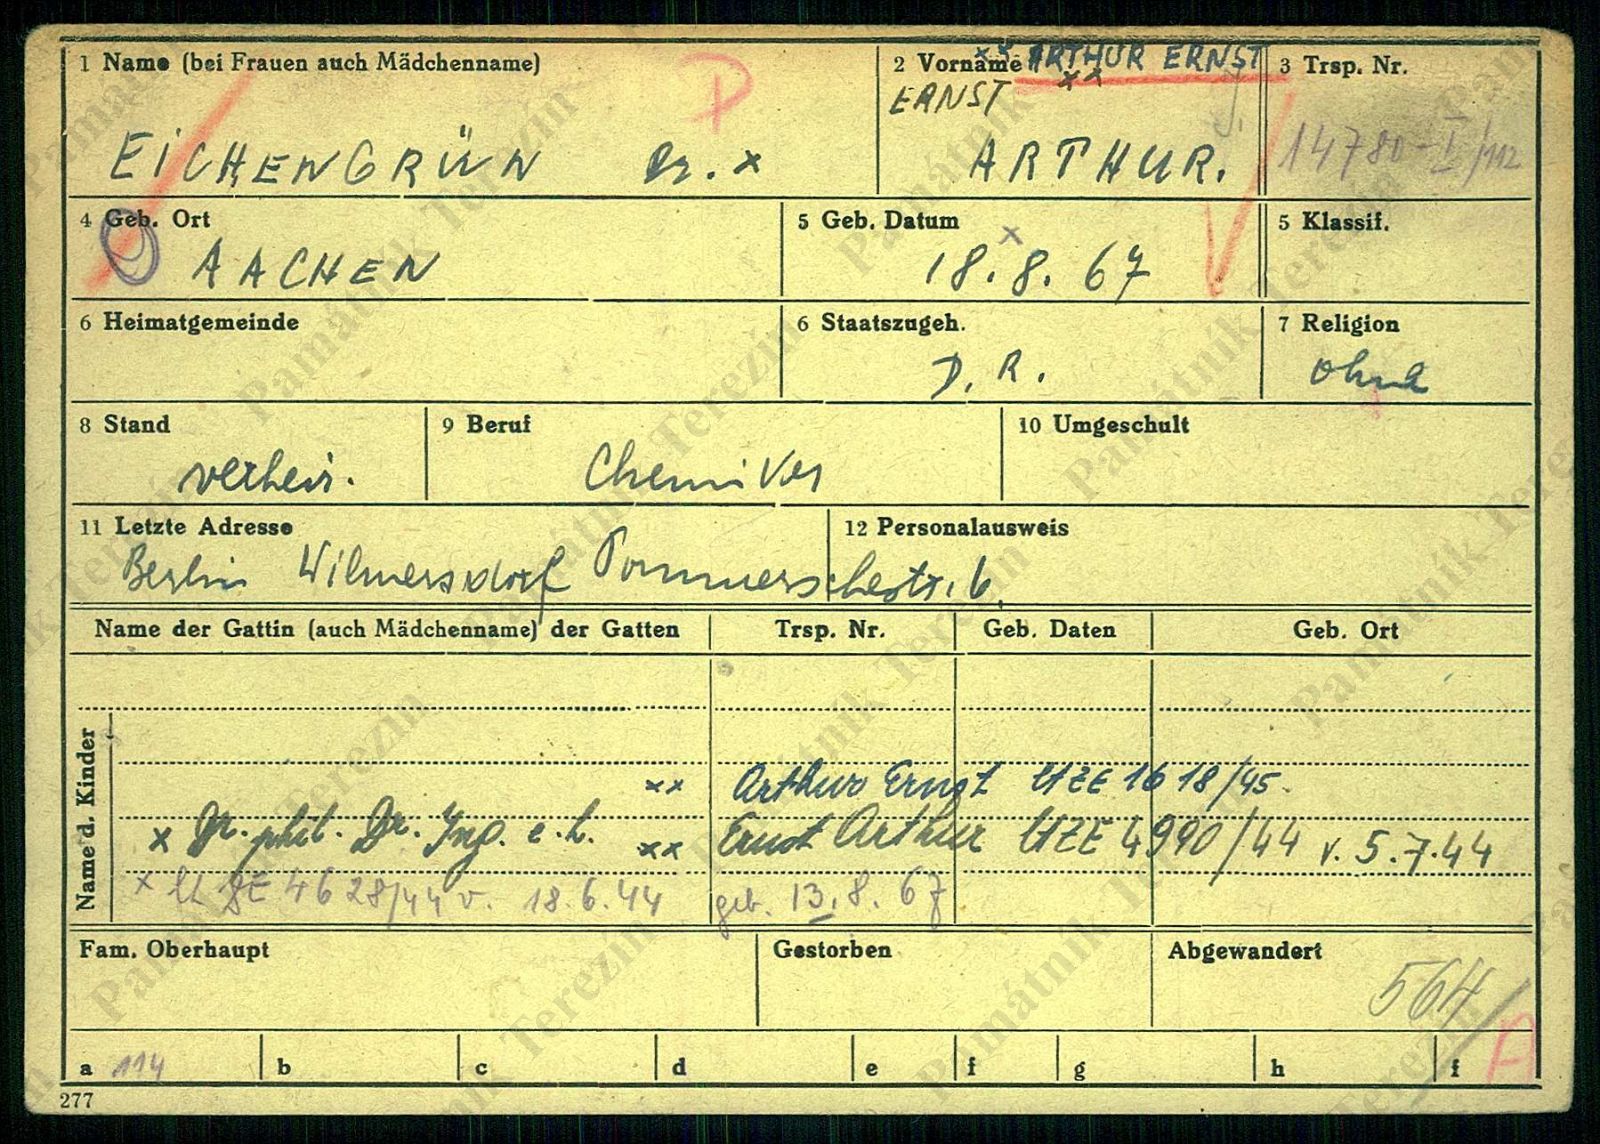 1 Name (bei Frauen auch Mädchenname)
EICHENGRÜN Dr. x
2 Vorname xx ARTHUR ERNST
xx
ERNST
ARTHUR.
3 Trsp. Nr.
14780-I/112
4 Geb. Ort
AACHEN
5 Geb. Datum
x
18.8.67
5 Klassif.
6 Heimatgemeinde
6 Staatszugeh.
D.R.
7 Religion
ohne
8 Stand
verheir.
9 Beruf
Chemiker
10 Umgeschult
11 Letzte Adresse
12 Personalausweis
Berlin Wilmersdorf Pommerschestr. 6.
Name der Gattin (auch Mädchenname) der Gatten
Trsp. Nr.
Geb. Daten
Geb. Ort
Name d. Kinder
xx Arthur Ernst UZE 1618/45.
x Dr. phil. Dr. Ing. e.h. xx Ernst Arthur UZE 4990/44 v. 5.7.44
x 4628/44 v. 18.6.44 geb. 13.8.67
Fam. Oberhaupt
Gestorben
Abgewandert
564/
a 114
b
c
d
e
f
g
h
f
A
277
Památník Terezín